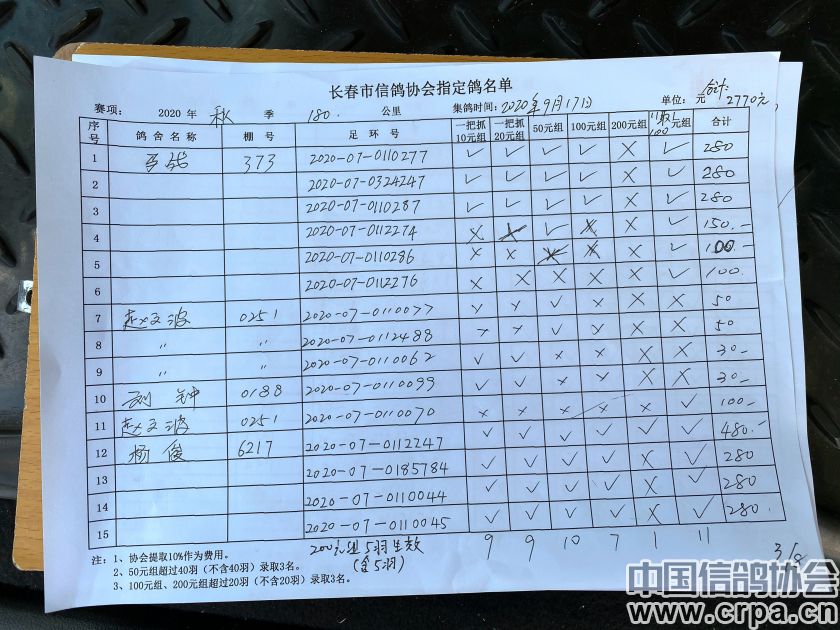 长春市信鸽协会指定鸽名单
赛项： 2020 年 秋 季 180 公里 集鸽时间：2020年9月17日 单位：元 合计：2770元
序号 鸽舍名称 棚号 足环号 一把抓10元组 一把抓20元组 50元组 100元组 200元组 11取1 100元组 合计
1 373 2020-07-0110277 ✓ ✓ ✓ ✓ × ✓ 280
2 2020-07-0324247 ✓ ✓ ✓ ✓ × ✓ 280
3 2020-07-0110287 ✓ ✓ ✓ ✓ × ✓ 280
4 2020-07-0112274 × × ✓ × × ✓ 150.-
5 2020-07-0110286 × × × × × ✓ 100-
6 2020-07-0112276 × × × × × ✓ 100.
7 赵文波 0251 2020-07-0110077 × × ✓ × × × 50
8 〃 〃 2020-07-0112488 × × ✓ × × × 50
9 〃 〃 2020-07-0110062 ✓ ✓ × × × × 30-
10 刘钟 0188 2020-07-0110099 ✓ ✓ × × × × 30-
11 赵文波 0251 2020-07-0110070 × × × × × ✓ 100-
12 杨俊 6217 2020-07-0112247 ✓ ✓ ✓ ✓ ✓ ✓ 480.-
13 2020-07-0185784 ✓ ✓ ✓ ✓ × ✓ 280
14 2020-07-0110044 ✓ ✓ ✓ ✓ × ✓ 280
15 2020-07-0110045 ✓ ✓ ✓ ✓ × ✓ 280.
200元组5羽生效 9 9 10 7 1 11
(含5羽)
注：1、协会提取10%作为费用。
2、50元组超过40羽（不含40羽）录取3名。
3、100元组、200元组超过20羽（不含20羽）录取3名。
中国信鸽协会
www.crpa.cn